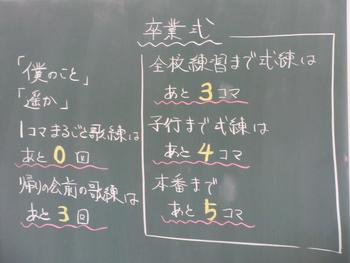 卒業式
「僕のこと」
「遥か」
1コマまるごと歌練は
あと0回
帰りの会前の歌練は
あと3回
全校練習まで式練は
あと3コマ
予行まで式練は
あと4コマ
本番まで
あと5コマ